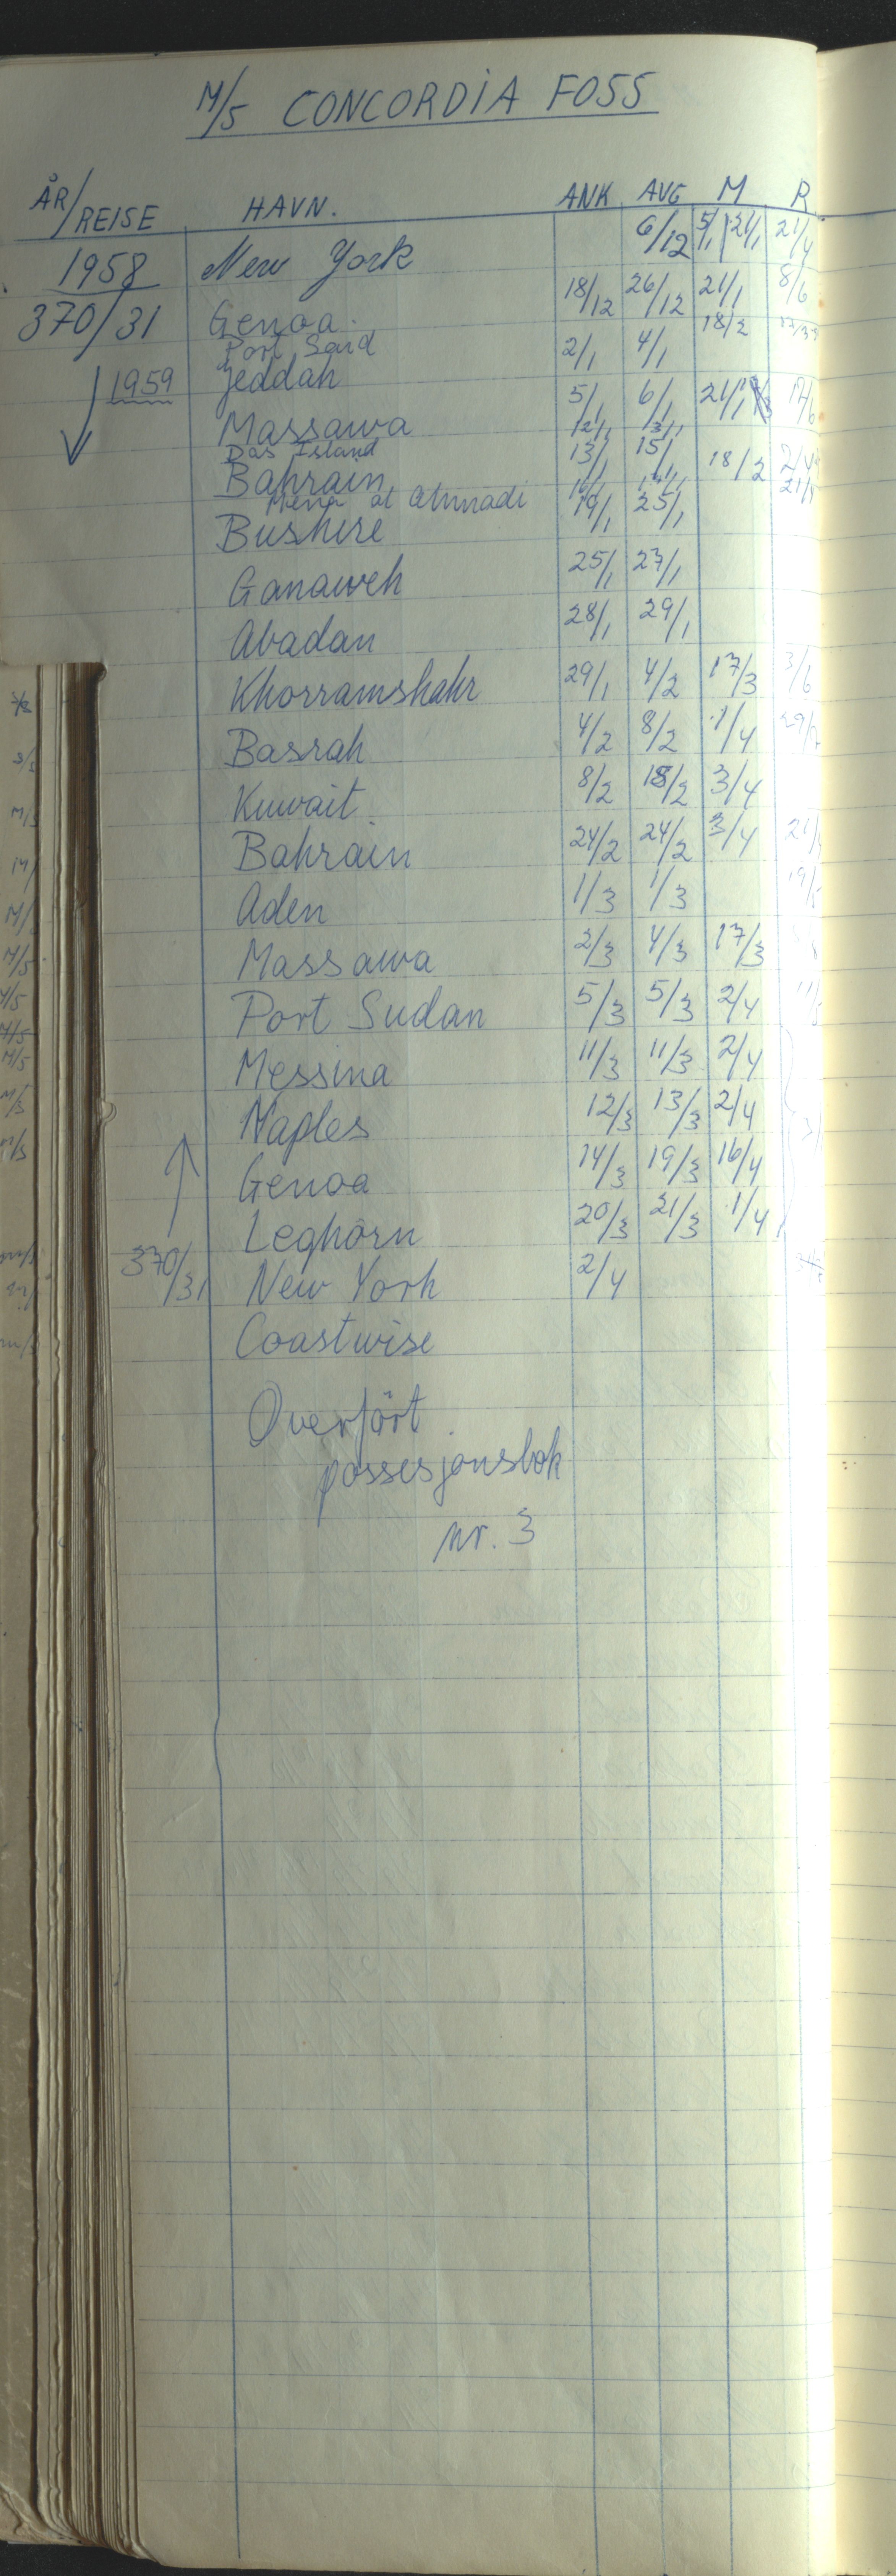 M/S CONCORDIA FOSS
ÅR/REISE HAVN. ANK AVG M R
1958 New York 6/12 5/1 21/1 21/4
370/31 Genoa 18/12 26/12 21/1 8/6
Port Said 18/2
1959 Jeddah 2/1 4/1
Massawa 5/1 6/1 21/1
Das Island 12/1 13/1
Bahrain 13/1 15/1 18/2
Mena al Ahmadi
Bushire 19/1 25/1
Ganaweh 25/1 27/1
Abadan 28/1 29/1
Khorramshahr 29/1 4/2 17/3 3/6
Basrah 4/2 8/2 1/4
Kuwait 8/2 18/2 3/4
Bahrain 24/2 24/2 3/4
Aden 1/3 1/3
Massawa 2/3 4/3 17/3
Port Sudan 5/3 5/3 2/4
Messina 11/3 11/3 2/4
Naples 12/3 13/3 2/4
Genoa 14/3 19/3 16/4
Leghorn 20/3 21/3 1/4
370/31 New York 2/4
Coastwise
Overført
possesjonsbok
nr. 3